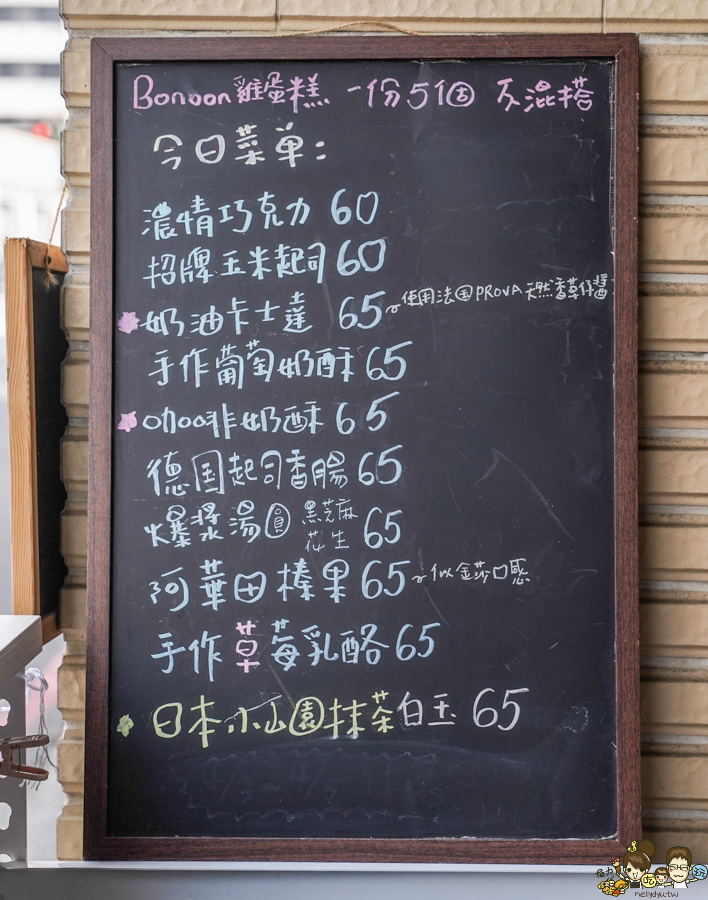 Bonoon 雞蛋糕 一份5個 不混搭
今日菜单:
濃情巧克力 60
招牌玉米起司 60
奶油卡士達 65 ~使用法国PROVA天然香草仔醬
手作葡萄奶酥 65
咖啡奶酥 65
德国起司香腸 65
爆漿湯圓 黑芝麻 花生 65
阿華田榛果 65 ~似金莎口感
手作草莓乳酪 65
日本小山園抹茶白玉 65
nellydyu.tw